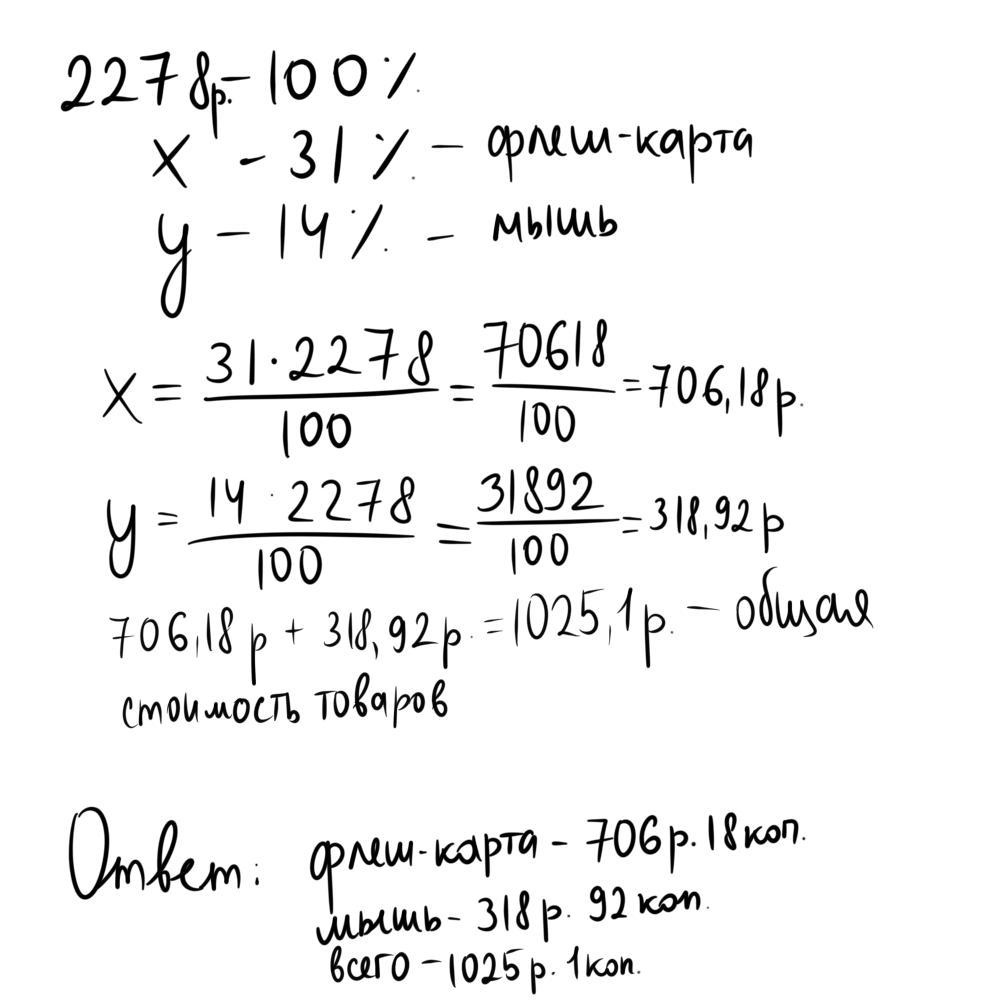 2278р. - 100%
x - 31% - флеш-карта
y - 14% - мышь
x = 31·2278/100 = 70618/100 = 706,18 р.
y = 14·2278/100 = 31892/100 = 318,92 р
706,18 р + 318,92 р. = 1025,1 р. - общая
стоимость товаров
Ответ: флеш-карта - 706 р. 18 коп.
мышь - 318 р. 92 коп.
всего - 1025 р. 1 коп.